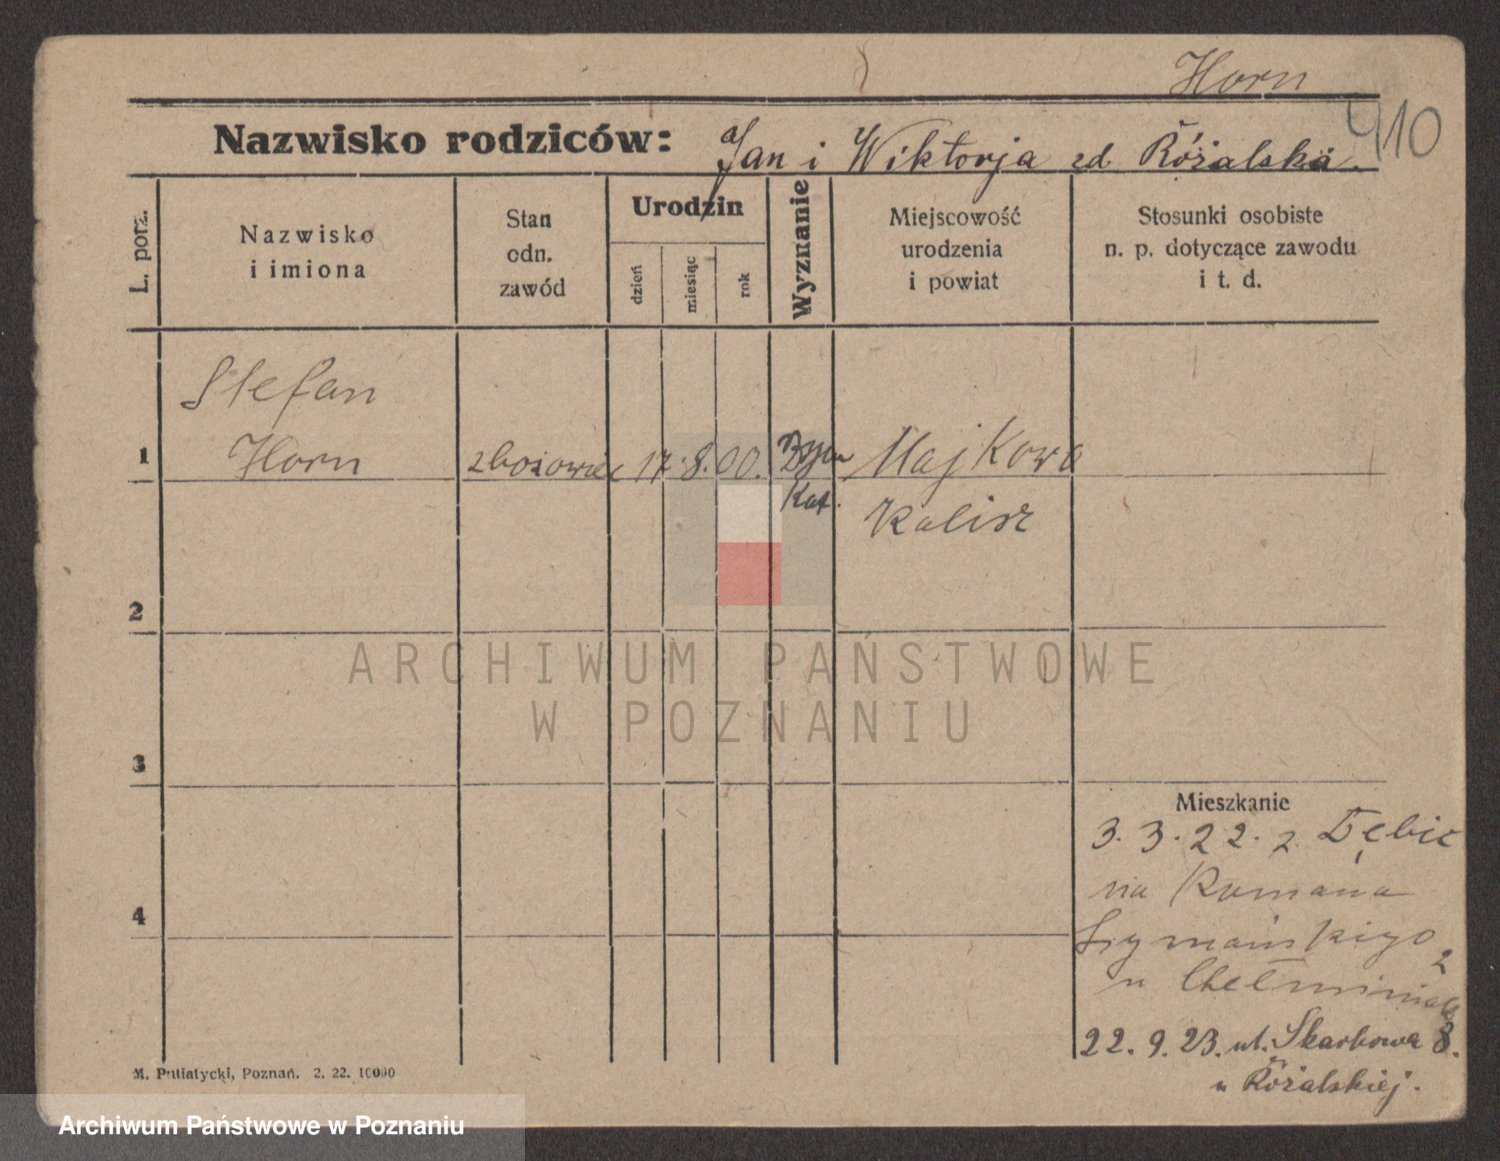 Horn
410
Nazwisko rodziców: Jan i Wiktorja zd Różalska.
L. porz.
Nazwisko
i imiona
Stan
odn.
zawód
Urodzin
dzień
miesiąc
rok
Wyznanie
Miejscowość
urodzenia
i powiat
Stosunki osobiste
n. p. dotyczące zawodu
i t. d.
Stefan
1 Horn zbożowiec 17. 8. 00. Rzym Majkowo
Kat. Kalisz
2
ARCHIWUM PAŃSTWOWE
W POZNANIU
3
Mieszkanie
3. 3. 22. z Dębic
na Romana
4
Szymańskigo 2
u Chełminiak
22. 9. 23. ul. Skarbowa 8.
u Różalskiej.
M. Putiatycki, Poznań. 2. 22. 10000
Archiwum Państwowe w Poznaniu